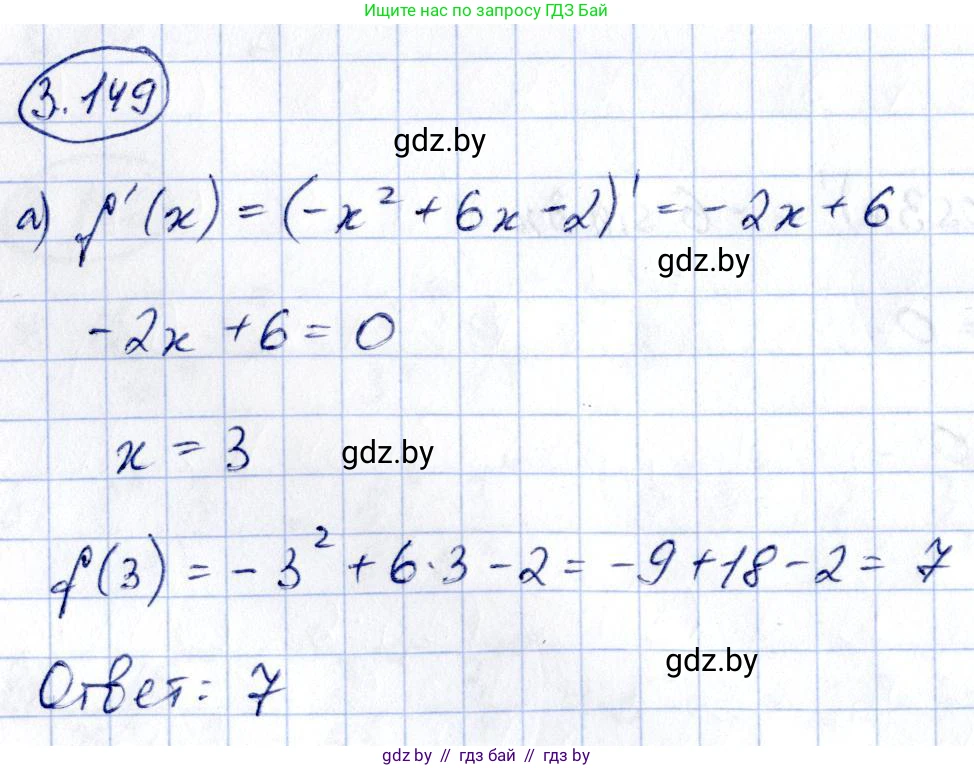 Ищите нас по запросу ГДЗ Бай
3.149
gdz.by
а) f'(x) = (-x² + 6x - 2)' = - 2x + 6
gdz.by
- 2x + 6 = 0
x = 3 gdz.by
f(3) = - 3² + 6·3 - 2 = - 9 + 18 - 2 = 7
gdz.by
Ответ: 7
gdz.by // гдз бай // gdz by